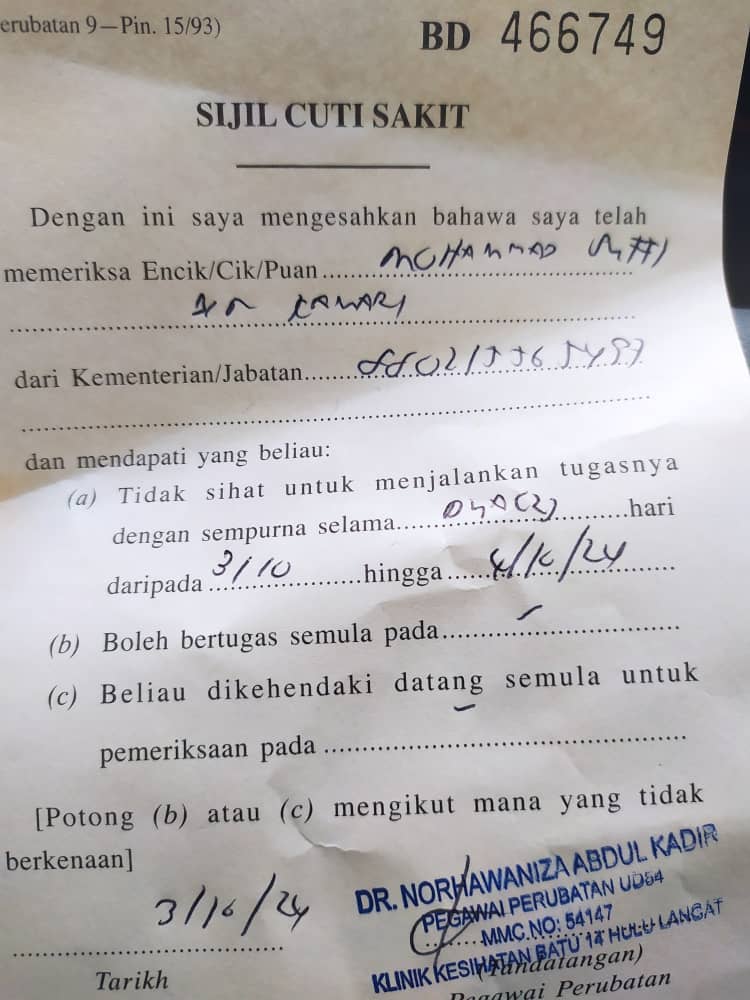 erubatan 9—Pin. 15/93)
BD 466749
SIJIL CUTI SAKIT
Dengan ini saya mengesahkan bahawa saya telah
memeriksa Encik/Cik/Puan.......... MOHAMMAD
dari Kementerian/Jabatan..........
dan mendapati yang beliau:
(a) Tidak sihat untuk menjalankan tugasnya
dengan sempurna selama.......... (2) ..........hari
daripada 3/10 ..........hingga.......... 4/10/24
(b) Boleh bertugas semula pada..........
(c) Beliau dikehendaki datang semula untuk
pemeriksaan pada ..........
[Potong (b) atau (c) mengikut mana yang tidak
berkenaan]
3/10/24
Tarikh
DR. NORHAWANIZA ABDUL KADIR
PEGAWAI PERUBATAN UD54
MMC.NO: 54147
KLINIK KESIHATAN BATU 14 HULU LANGAT
(Tandatangan)
Pegawai Perubatan